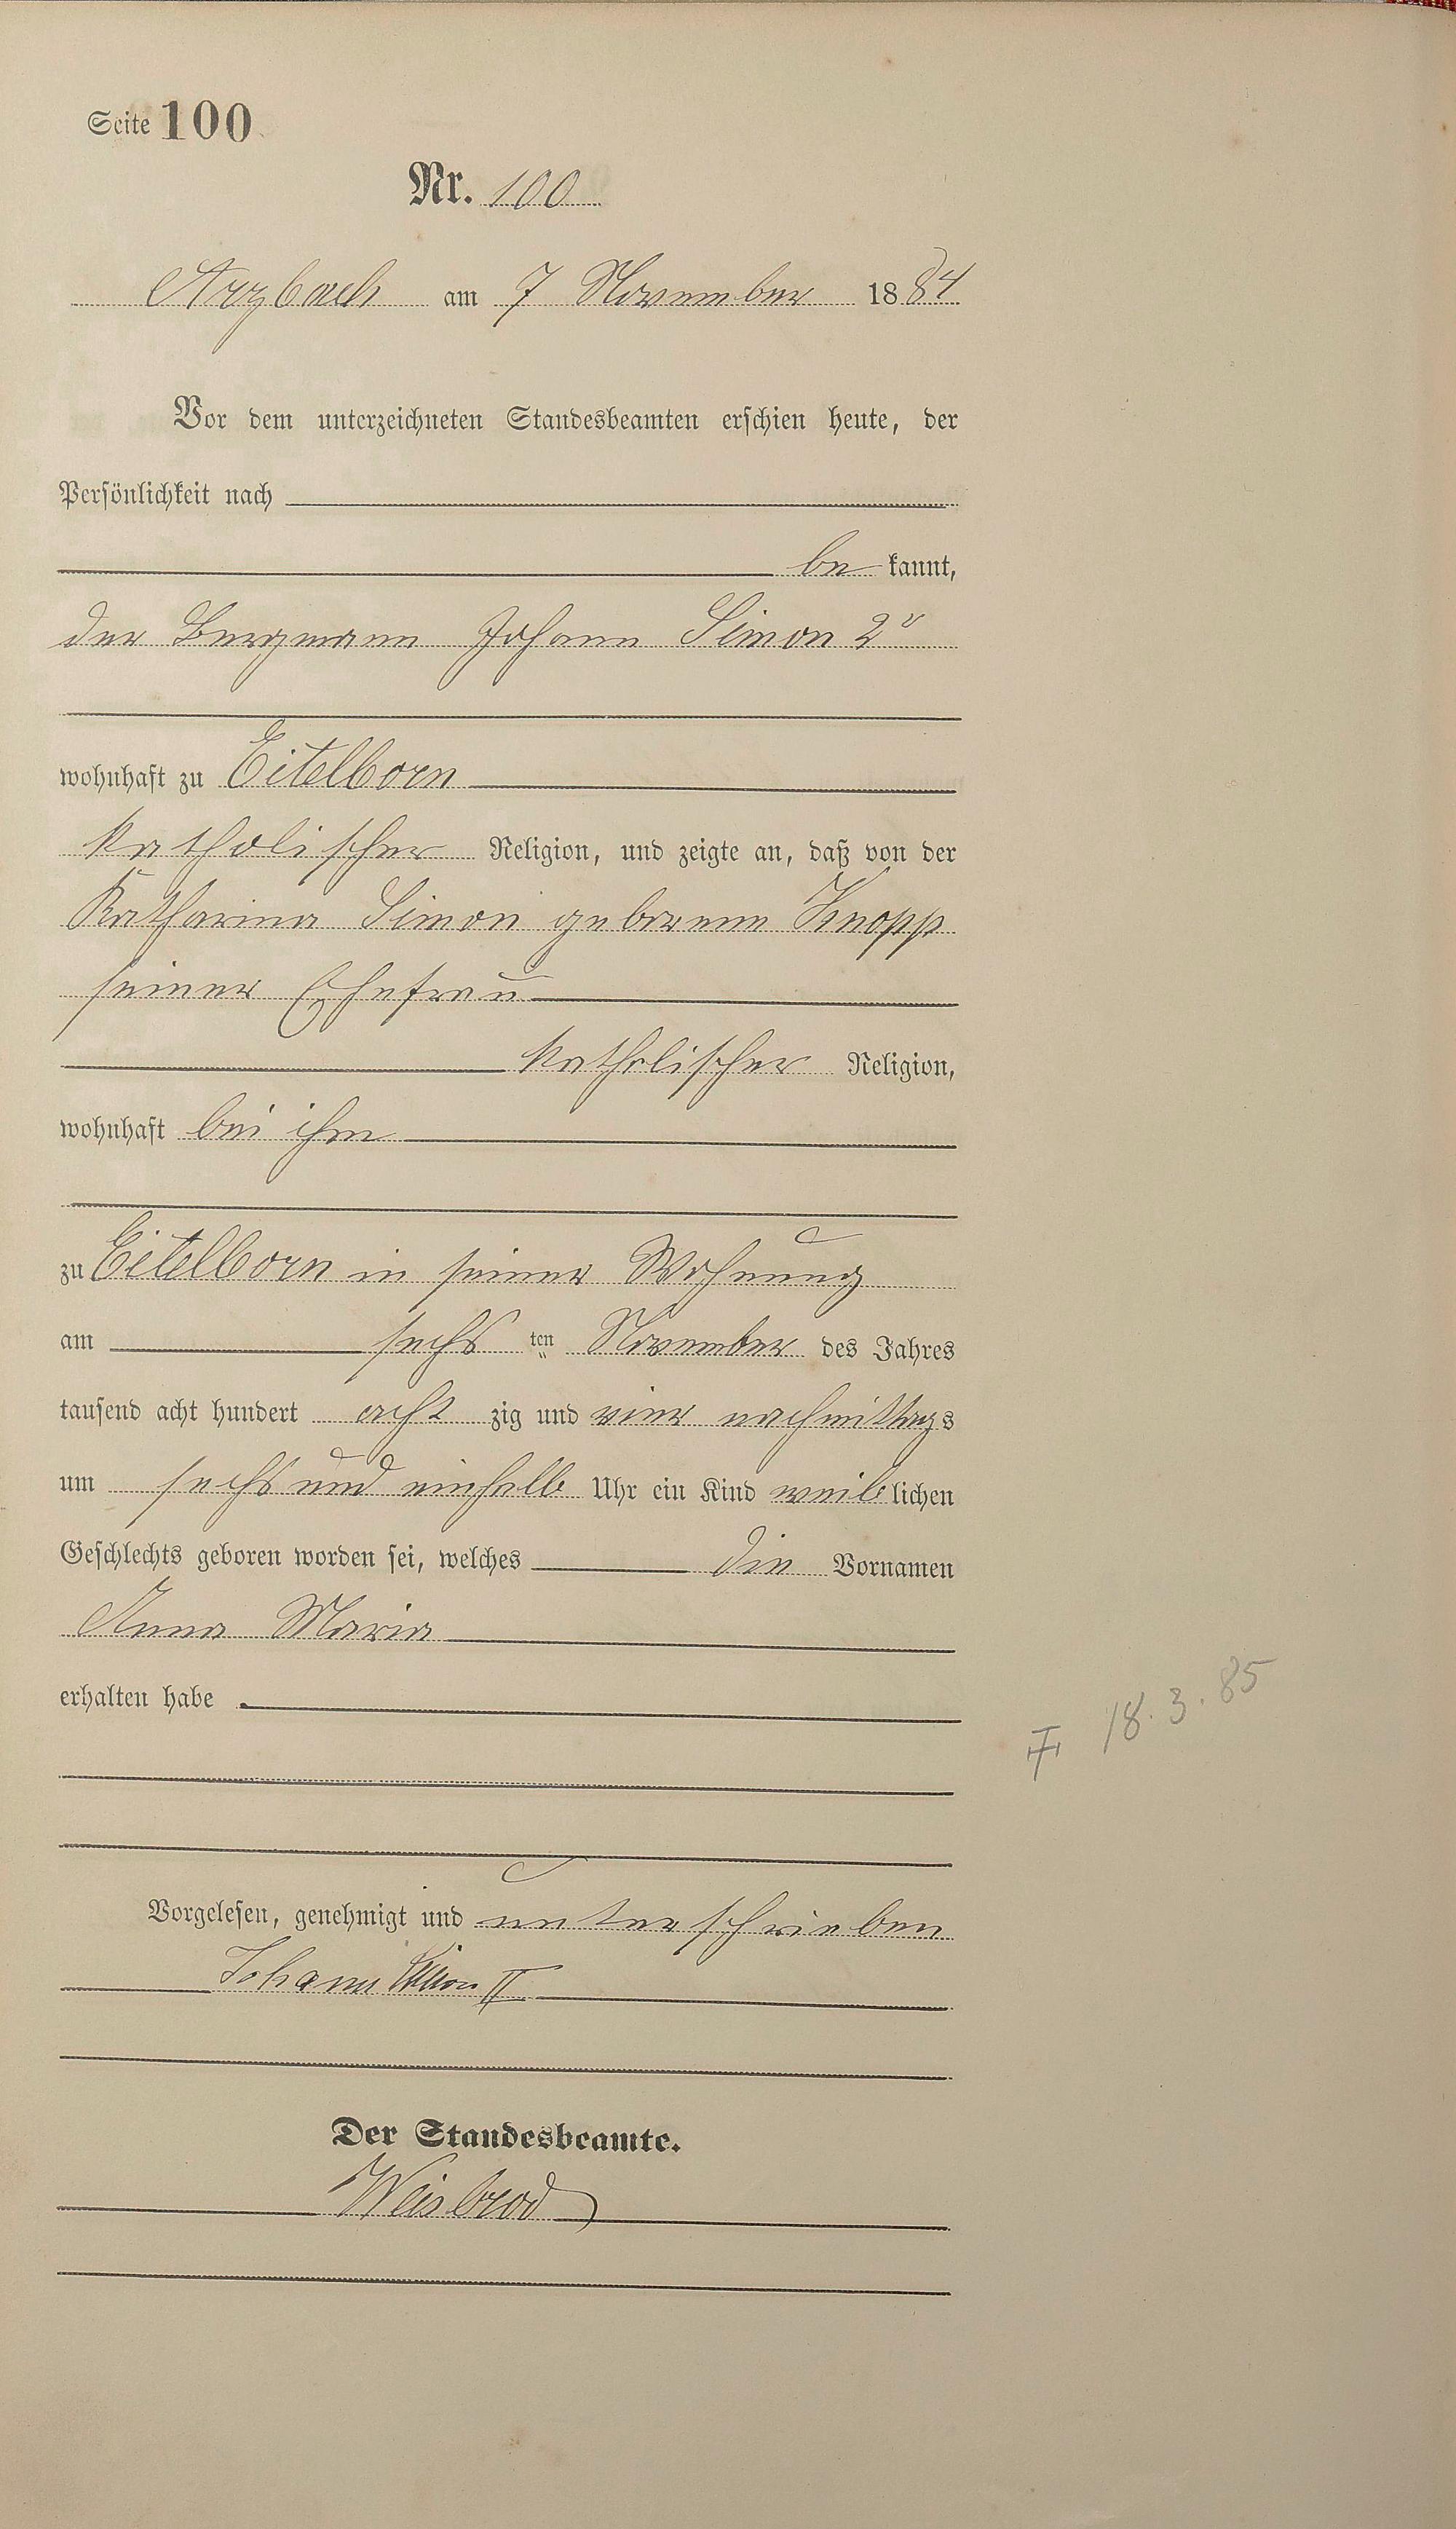 Seite 100
Nr. 100
Arzbach am 7 November 1884
Vor dem unterzeichneten Standesbeamten erschien heute, der
Persönlichkeit nach
be kannt,
der Bergmann Johann Simon 2r
wohnhaft zu Eitelborn
katholischer Religion, und zeigte an, daß von der
Katharina Simon geborene Knopp
seiner Ehefrau
katholischer Religion,
wohnhaft bei ihm
zu Eitelborn in seiner Wohnung
am sechs ten November des Jahres
tausend acht hundert acht zig und vier nachmittags
um sechs und einhalb Uhr ein Kind weiblichen
Geschlechts geboren worden sei, welches die Vornamen
Anna Maria
erhalten habe .
† 18.3.85
Vorgelesen, genehmigt und unterschrieben
Johann Simon II
Der Standesbeamte.
Weisbrod